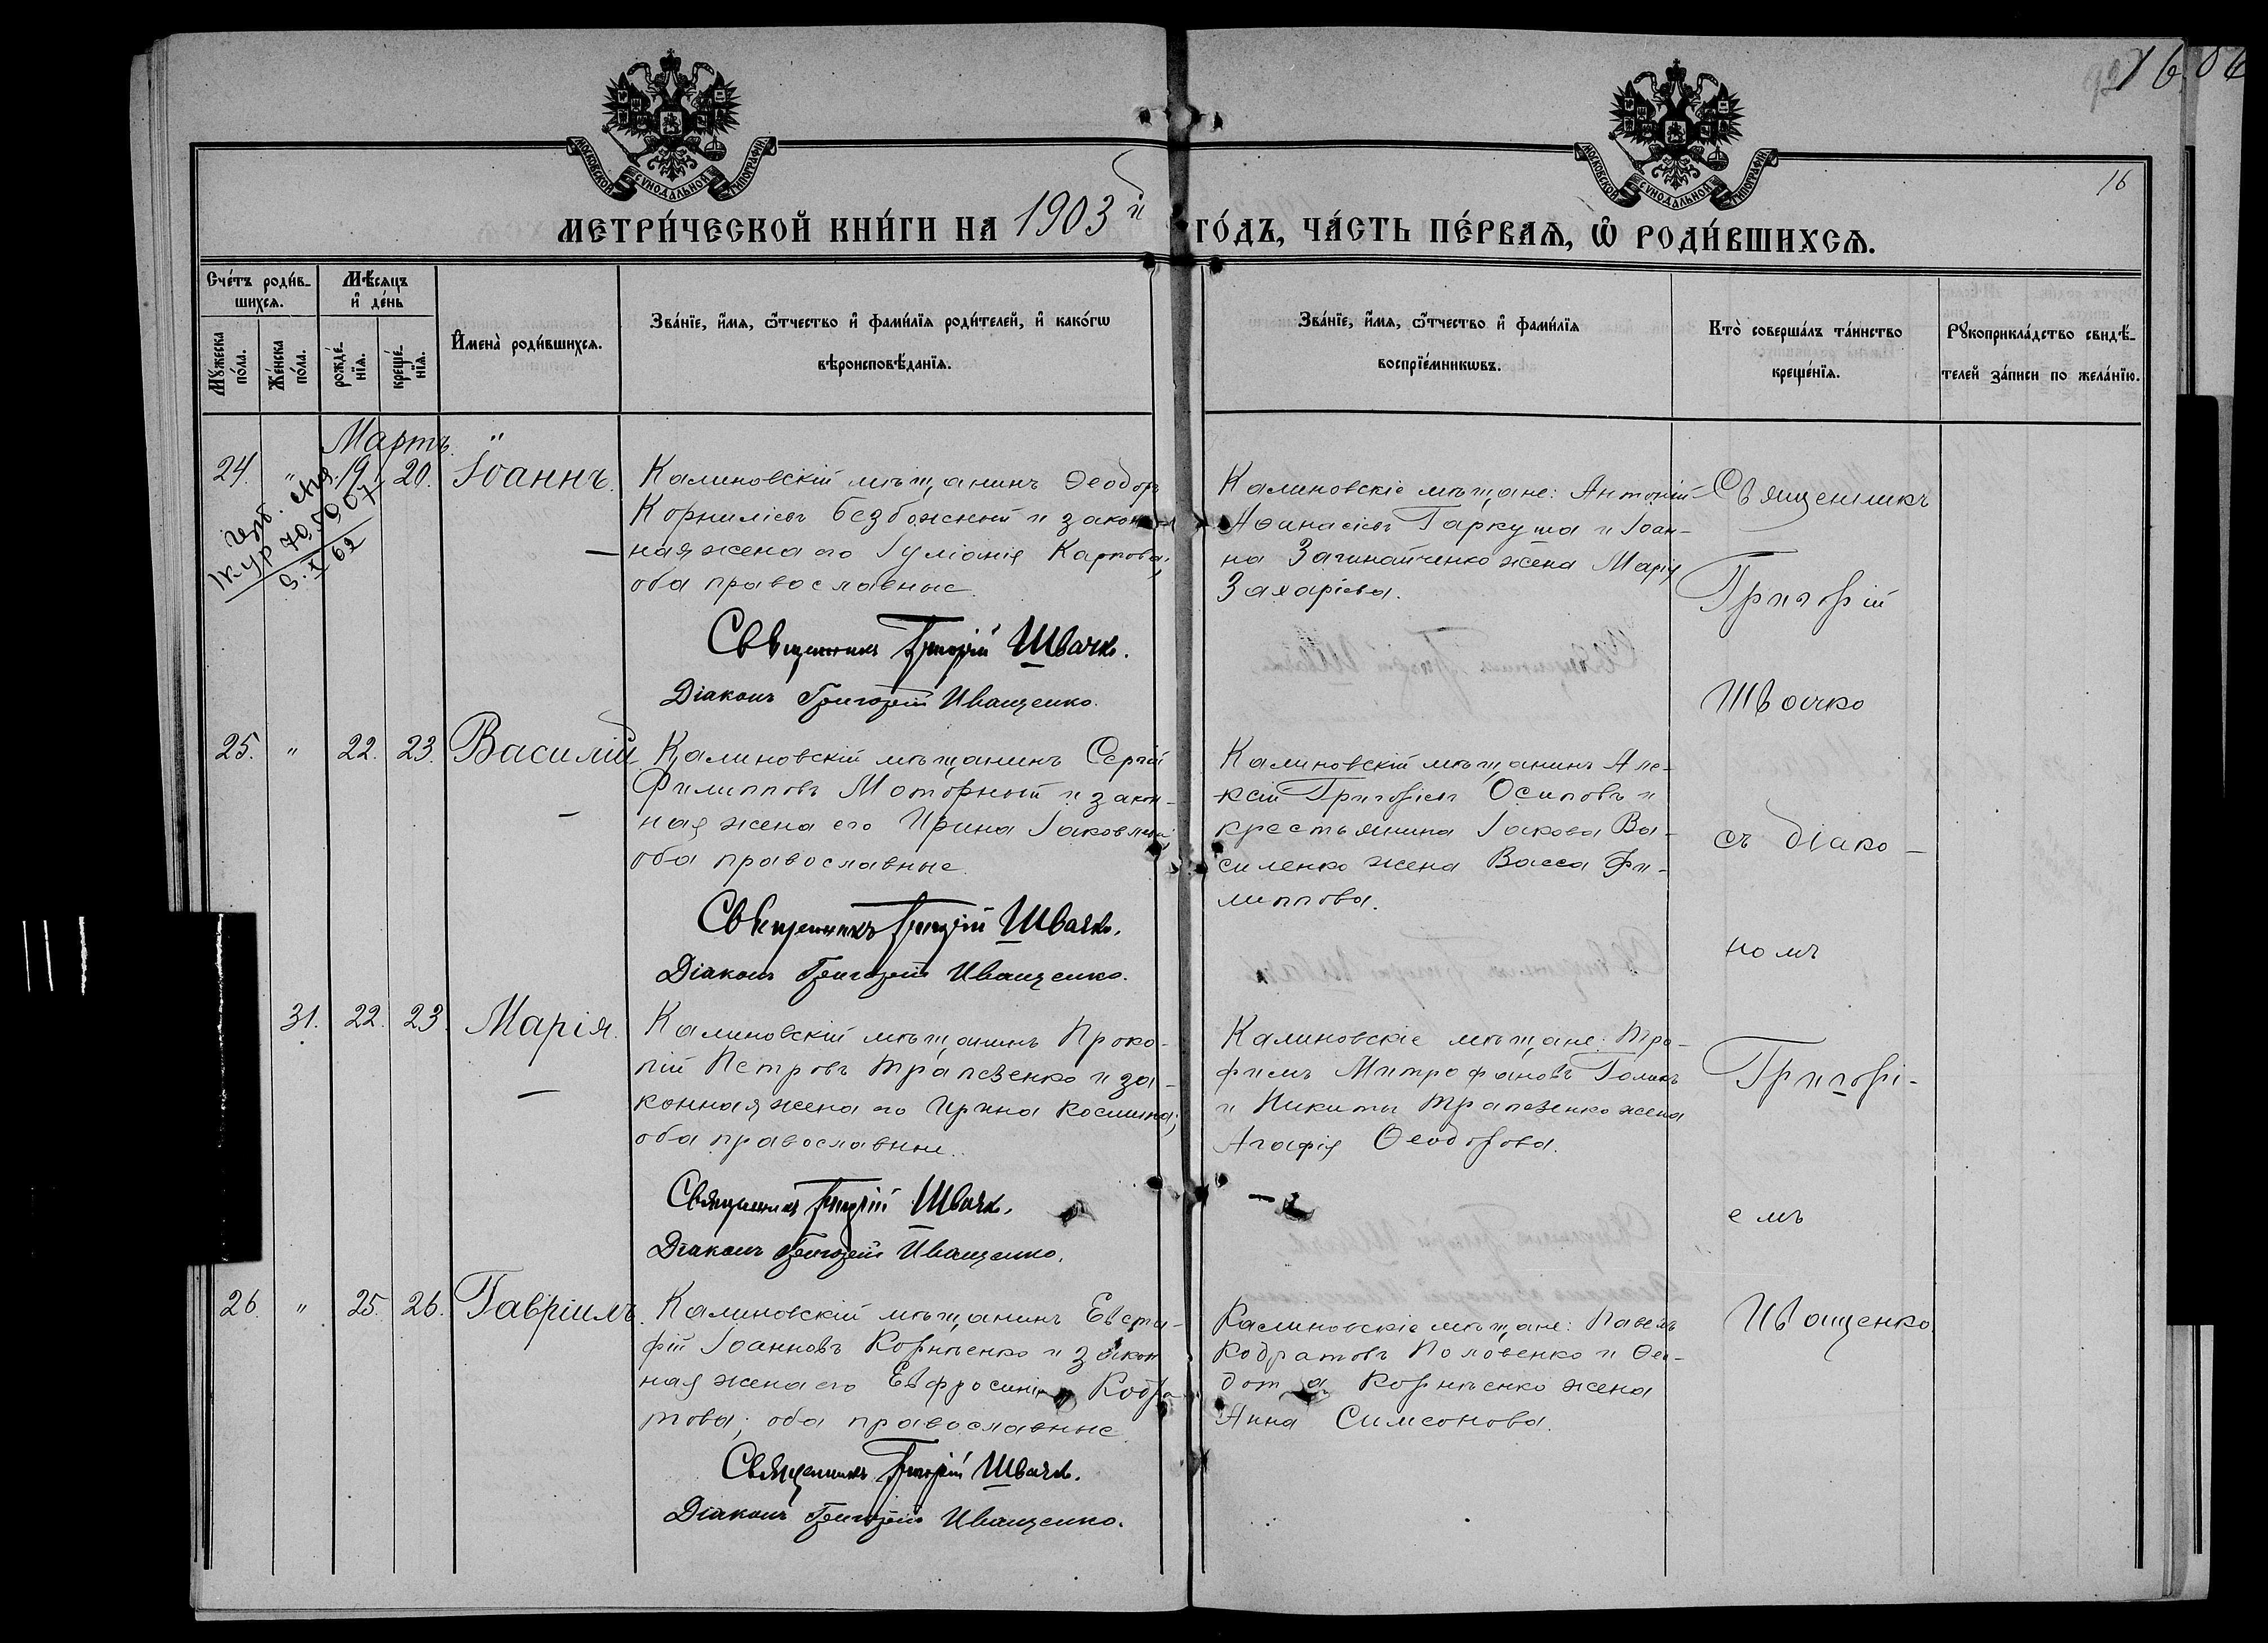 16
16
МОСКОВСКОЙ СѴНОДАЛЬНОЙ ТИПОГРАФІИ.
МОСКОВСКОЙ СѴНОДАЛЬНОЙ ТИПОГРАФІИ.
МЕТРИ́ЧЕСКОЙ КНИ́ГИ НА 1903й ГО́ДЪ, ЧА́СТЬ ПЕ́РВАѦ, Ѽ РОДИ́ВШИХСѦ.
Сче́тъ роди́в-
шихсѧ.
Мꙋ́жеска по́ла.
Же́нска по́ла.
Мѣ́сѧцъ
и҆ де́нь
рожде́-
нїѧ.
креще́-
нїѧ.
И҆мена̀ роди́вшихсѧ.
Зва́нїе, и҆́мѧ, ѻ҆́тчество и҆ фами́лїѧ роди́телей, и҆ како́гѡ
вѣроисповѣ́данїѧ.
Зва́нїе, и҆́мѧ, ѻ҆́тчество и҆ фами́лїѧ
воспрїе́мникѡвъ.
Кто̀ соверша́лъ та́инство
креще́нїѧ.
Рꙋкоприкла́дство свидѣ́-
телей за́писи по жела́нїю.
Мартъ. "
24. " 19. 20. Іоаннъ.
Калиновскій мѣщанинъ Ѳеодоръ
Корниліевъ Безбожный и закон-
ная жена его Іуліанія Карпова;
оба православные.
Священникъ Григорій Швачко.
Діаконъ Григорій Иващенко.
Калиновскіе мѣщане: Антоній
Аѳанасіевъ Гаркуша и Іоан-
на Загинайченко жена Марія
Захаріева.
Священникъ
Григорій
Швачко
25. " 22. 23. Василій
Калиновскій мѣщанинъ Сергій
Филипповъ Моторный и закон-
ная жена его Ирина Іаковлева
оба православные.
Священникъ Григорій Швачко.
Діаконъ Григорій Иващенко.
Калиновскій мѣщанинъ Але-
ксій Григоріевъ Осиповъ и
крестьянина Іакова Ва-
силенко жена Васса Фи-
липпова.
съ діако-
номъ
31. 22. 23. Марія.
Калиновскій мѣщанинъ Проко-
пій Петровъ Трапезенко и за-
конная жена его Ирина Космина;
оба православные.
Священникъ Григорій Швачко.
Діаконъ Григорій Иващенко.
Калиновскіе мѣщане: Тро-
фимъ Митрофановъ Голикъ
и Никиты Трапезенко жена
Агафія Ѳеодорова.
Григорі-
емъ
26. " 25. 26. Гавріилъ.
Калиновскій мѣщанинъ Евста-
фій Іоанновъ Корніенко и закон
ная жена его Евфросинія Кодра-
това; оба православные.
Священникъ Григорій Швачко.
Діаконъ Григорій Иващенко.
Калиновскіе мѣщане: Павелъ
Кодратовъ Половенко и Ѳео-
дота Корніенко жена
Анна Симеонова.
Иващенко.